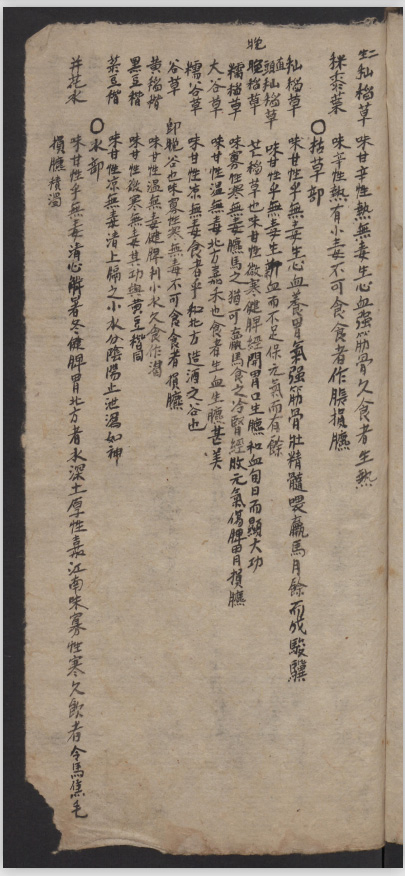 生秈稻草 味甘辛性熱無毒生心血強筋骨久食者生熱
稞黍葉 味辛性熱有小毒不可食食者作脹損臕
〇枯草部
秈稻草 味甘性平無毒生心血養胃氣強筋骨壯精髓喂羸馬月餘而成駿驥
秈稻草 味甘性平無毒生血而不足保元氣而有餘
晚稻草 芒稻草也味甘性微寒健脾經開胃口生臕和血旬日而顯大功
糯稻草 味寡性寒無毒臕馬之猶可羸馬食之冷腎經敗元氣傷脾胃月損臕
大谷草 味甘性溫無毒北方嘉禾也食者生血生臕甚美
糯谷草 味甘性凉無毒食者平和北方造酒之谷也
谷草 即晚谷也味寡性寒無毒不可食食者損臕
黄稻楷 味甘性溫無毒健脾利小水久食作瀉
黑豆楷 味甘性微寒無毒其功與黄豆楷同
菉豆楷 味甘性凉無毒清上膈之小水分陰陽止泄瀉如神
〇水部
井花水 味甘性平無毒清心解暑冬健脾胃北方者水深土厚性嘉江南味寡性寒久飲者令馬焦毛
損臕精濁